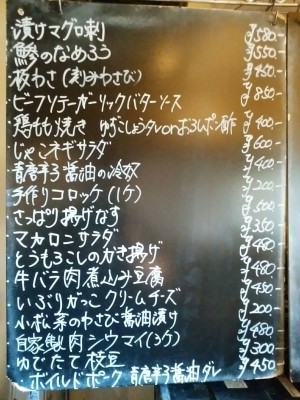 漬けマグロ刺 ¥580-
鯵のなめろう ¥550-
板わさ(刻みわさび) ¥450-
ビーフソテーガーリックバターソース ¥850-
鶏もも焼き ゆずこしょうタレonおろしポン酢
じゃこネギサラダ
青唐辛子醤油の冷奴
手作りコロッケ(1ケ)
さっぱり揚げなす
マカロニサラダ
とうもろこしのかき揚げ
牛バラ肉煮込み豆腐
いぶりがっこクリームチーズ
小松菜のわさび醤油漬け
自家製肉シウマイ(3ケ)
ゆでたて枝豆
ボイルドポーク 青唐辛子醤油ダレ ¥450